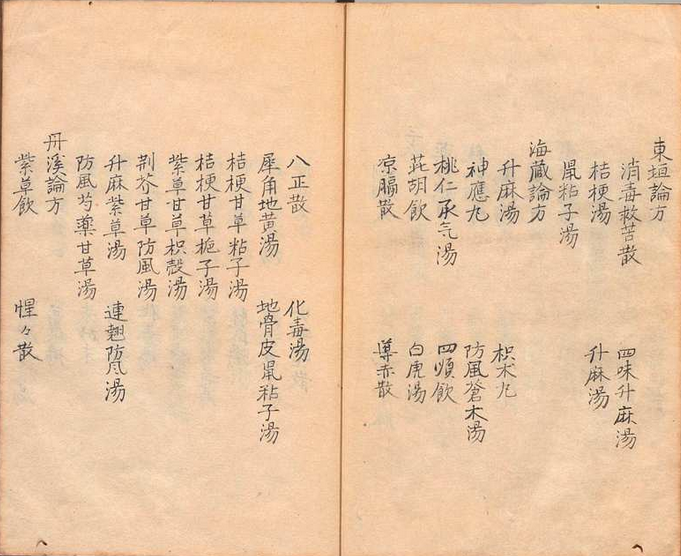 東垣論方
消毒救苦散　四味升麻湯
桔梗湯　升麻湯
鼠粘子湯
海藏論方
升麻湯　枳朮丸
神應丸　防風蒼朮湯
桃仁承气湯　四順飲
茈胡飲　白虎湯
凉膈散　導赤散
八正散　化毒湯
犀角地黄湯　地骨皮鼠粘子湯
桔梗甘草粘子湯
桔梗甘草栀子湯
紫草甘草枳殼湯
荆芥甘草防風湯
升麻紫草湯　連翹防風湯
防風芍藥甘草湯
丹溪論方
紫草飲　惺々散